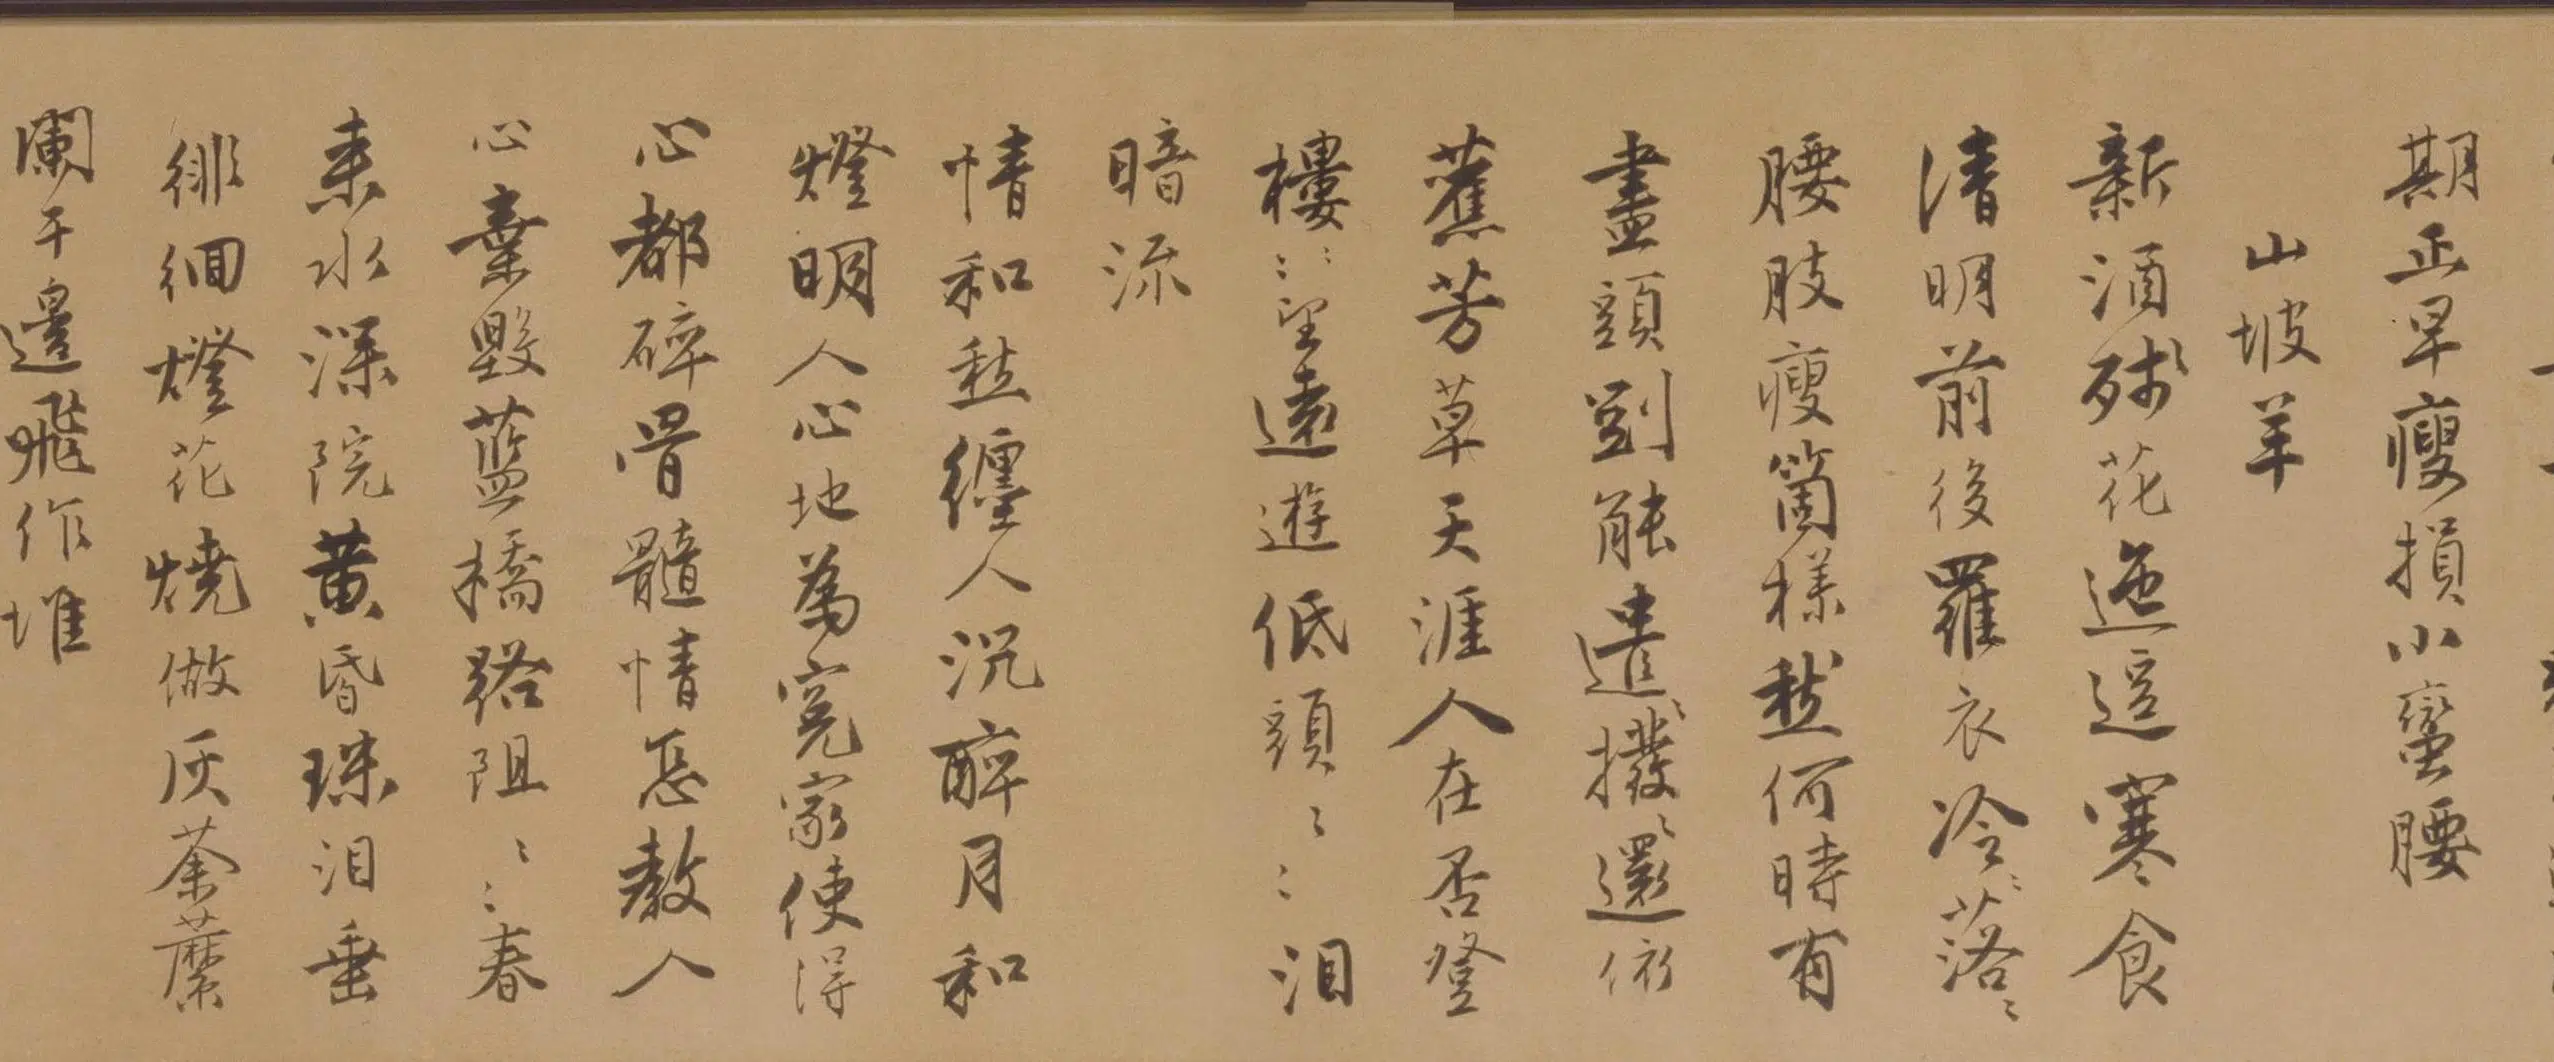 期正早瘦損小蠻腰
山坡羊
新酒殘花迤逗寒食
清明前後羅衣冷〻落〻
腰肢瘦箇樣愁何時有
盡頭劉能遣撥〻還依
蕉芳草天涯人在否登
樓〻〻望遠遊低頭〻〻淚
暗流
情和愁纏人沉醉月和
燈明人心地為冤家使得
心都碎骨髓情怎教人
心棄毀藍橋路阻〻〻春
來水深院黃昏珠淚垂
徘徊燈花燒做灰荼蘼
闌干邊飛作堆